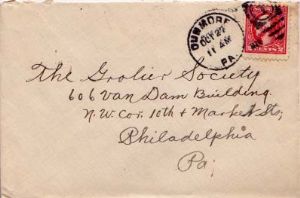 DUNMORE
OCT 27
11 AM
PA.
The Grolier Society
606 Van Dam Building.
N.W. Cor. 10th + Market Sts,
Philadelphia
Pa.